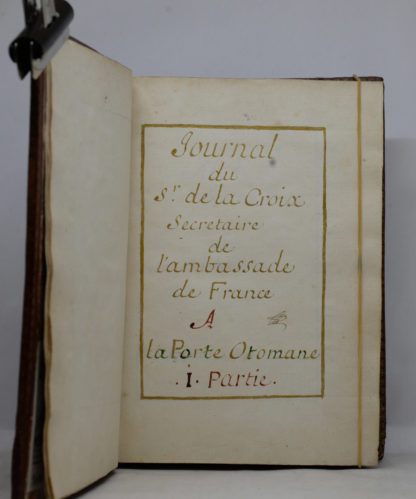 Journal
du
Sr. de la Croix
Secretaire
de
l'ambassade
de France
A
la Porte Otomane
. I . Partie .